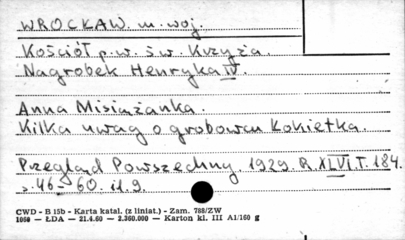 WROCŁAW. m. woj.
Kościół p.w. św. Krzyża.
Nagrobek Henryka IV.
Anna Misiążanka.
Kilka uwag o grobowcu Łokietka.
Przegląd Powszechny. 1929. R. XLVI. T. 184.
s. 46-60. il. 9.
CWD - B 15b - Karta katal. (z liniat.) - Zam. 788/ZW
1060 — ŁDA — 21.4.60 — 2.360.000 — Karton kl. III A1/160 g